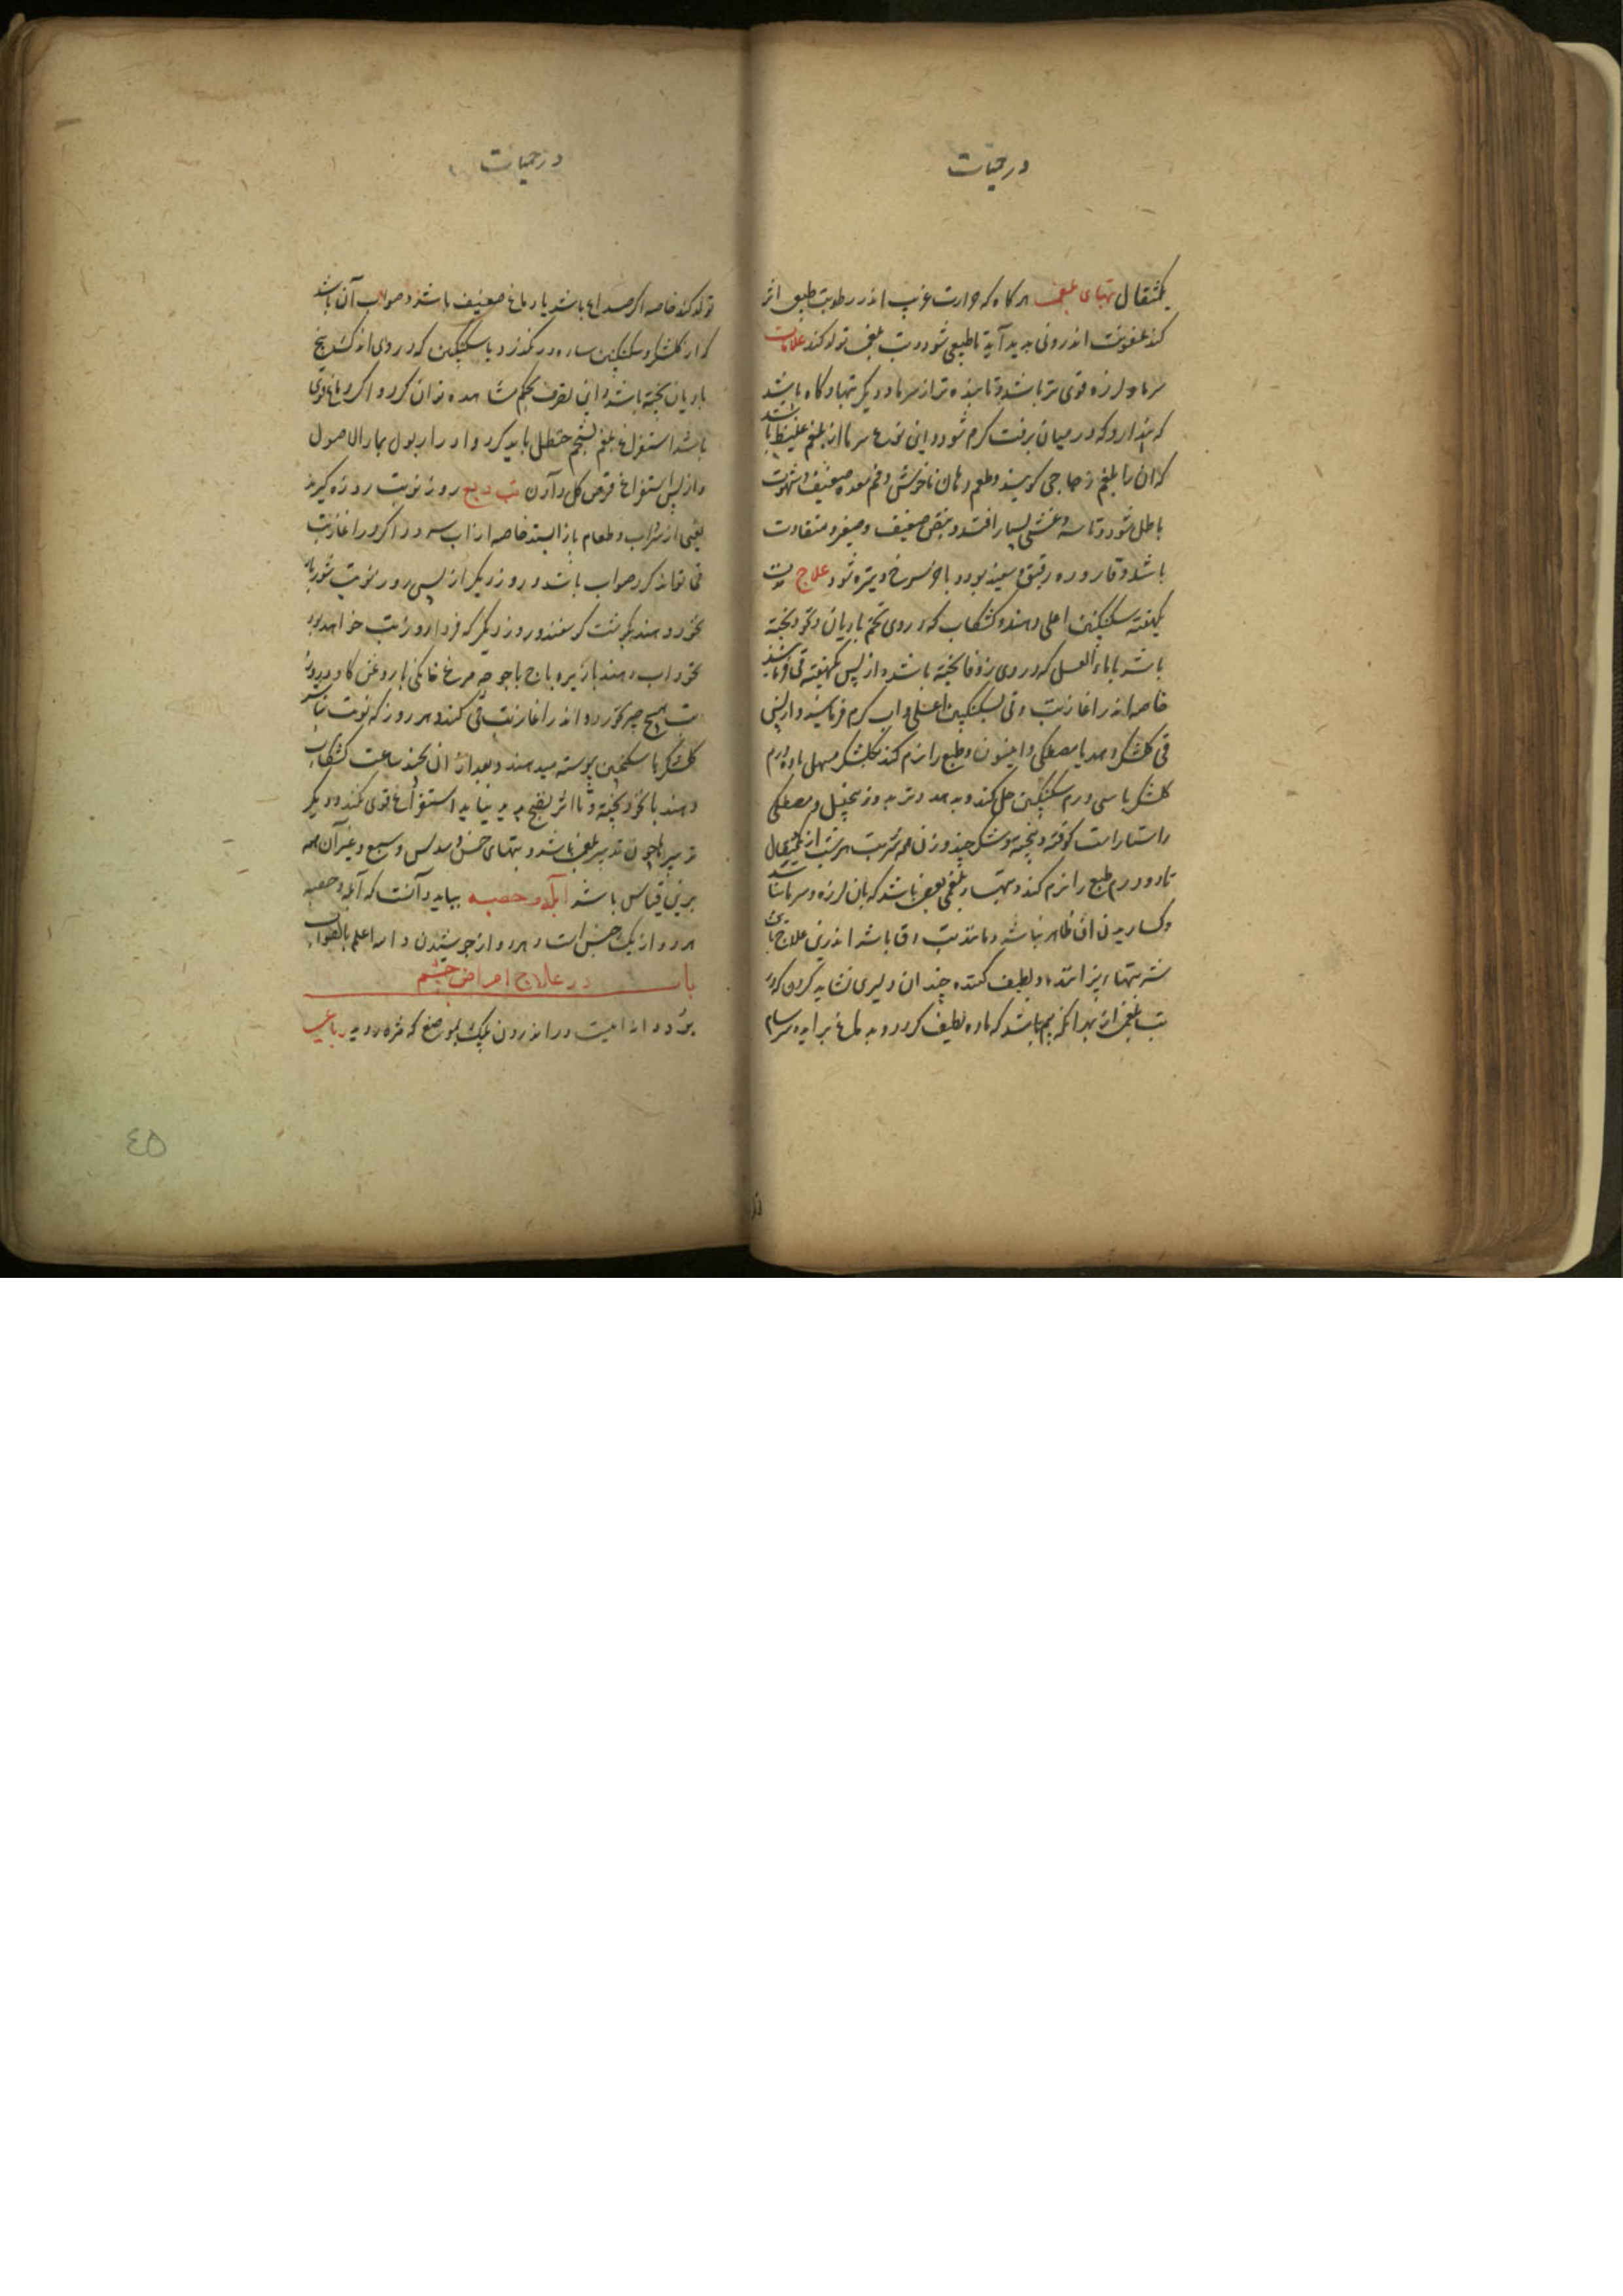 در حمیات
یکمثقال تبهای بلغمی هرکاه که حرارت غریب اندر رطوبت طبیعی اثر
کند عفونت اندرونی پدید آید ناطبیعی شود و تب بلغمی تولد کند علامات
سرما و لرزه قوی تر باشد و تا بنده تر از سرما و دیکر تبها و کاه باشد
که پندارد که در میان برفت کرم شود و این نوع سرما از بلغم غلیظ باشد
که ان را بلغم زجاجی کویند و طعم دهان ناخوش و فم معده ضعیف و شهوت
باطل شود و تاسه و غشی بسیار افتد و نبض ضعیف و صغیر و متفاوت
باشد و قاروره رقیق و سفید بود و باخر سرخ و تیره شود علاج
یکهفته سکنکبین اعلی دهند و کشکاب که در وی تخم بادیان و نخود پخته
باشد یا ماء العسل که در وی زوفا پخته باشد و از پس یکهفته قی فرمایند
خاصه اندر اغاز تب و قی بسکنکبین اعلی و اب کرم فرمایند و از پس
قی کلشکر دهد با مصطکی و انیسون و طبع را نرم کند بکلشکر مسهل ده درم
کلشکر با سی درم سکنکبین حل کند و بدهد و تربد و زنجبیل و مصطکی
راستاراست کوفته و بیخته و شکر چند وزن همه شربت هر شب از یکمثقال
تا دو درم طبع را نرم کند و تبهاء بلغمی بعضی باشد که بان لرزه و سرما نباشد
و کساریدن ان ظاهر نباشد و مانند تب دق باشد اندرین علاج
شربتهاء پزاننده و لطیف کننده چندان دلیری نشاید کردن که در
تب بلغمی از بهر انکه بیم باشد که ماده لطیف کردد و به دماغ براید و سرسام
در حمیات
تولد کند خاصه اکر صداع باشد یا دماغ ضعیف باشد و صواب آن باشد
که از کلشکر و سکنکبین ساده در نکذرد یا سکنکبین که در وی اندکی بیخ
بادیان پخته باشد و این تصرف بحکم مشاهده توان کرد و اکر دماغ قوی
باشد استفراغ بلغم بشحم حنظل باید کرد و ادرار بول بماء الاصول
و از پس استفراغ قرص کل دادن تب ربع روز نوبت روزه کیرند
یعنی از شراب و طعام باز ایستد خاصه از اب سرد و اکر در اغاز تب
قی تواند کرد صواب باشد و روز دیکر از پس روز نوبت شوربای
نخود دهند بکوشت کوسفند و روز دیکر که فردا روز تب خواهد بود
نخوداب دهند یا زیره باج با جوجه مرغ خانکی با روغن کاو و روز
تب هیج چیز نخورد و اندر اغاز تب قی کند و هر روز که نوبت نباشد
کلشکر با سکنجبین پیوسته میدهند و بعد از ان بچند ساعت کشکاب
دهند با نخود پخته و تا اثر نضج پدید نیاید استفراغ قوی نکند و دیکر
تدبیرها چون تدبیر بلغمی باشد و تبهای خمس و سدس و سبع و غیر آن همه
برین قیاس باشد آبله و حصبه بباید دانست که آبله و حصبه
هر دو از یک جنس است و هر دو از جوشیدن و الله اعلم بالصواب
باب در علاج امراض چشم
در اندرون پلک
٤٥